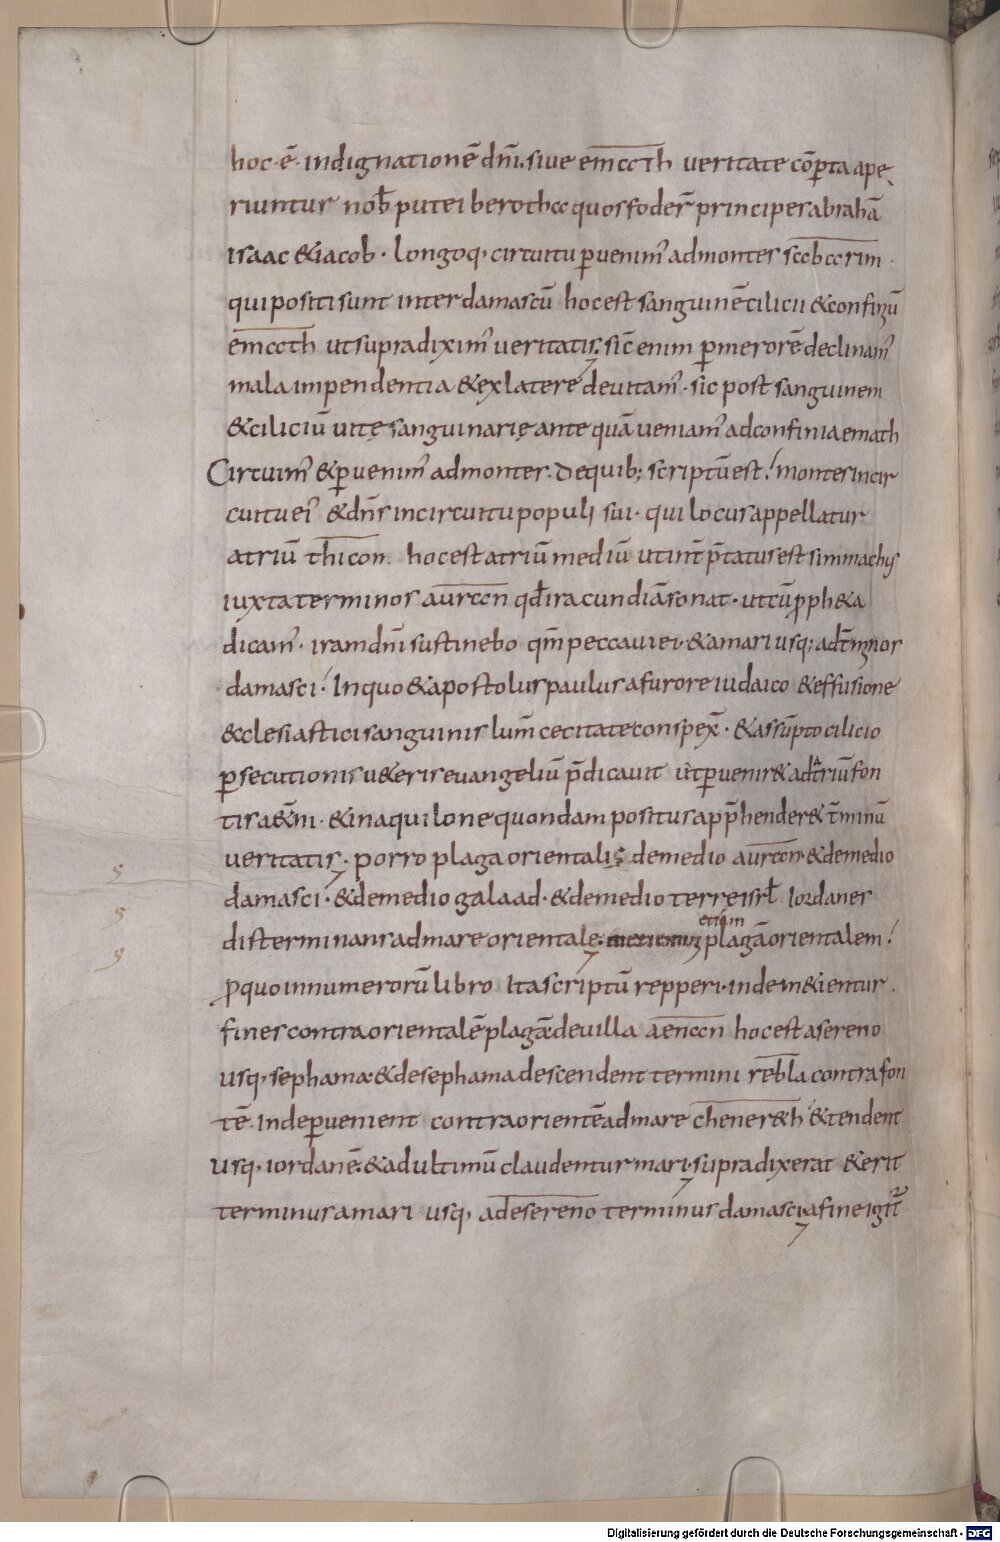 hoc · ē · indignationē dn̄i. siue em̅c̅c̅t̅h ueritate cōp̱ta ape
riuntur nob̄ putei berothcc quos foder̄ principes abrahā
isaac & iacob · longoq; circuitu p̱uenim̄ ad montes sccbccrim ·
qui positi sunt inter damascū hoc est sanguinē cilicii & confiniū
emccth ut supra dixim̄ ueritatis; sic̄ enim p̱ merorē declinam̄
mala impendentia & ex latere deuitam̄ · sic post sanguinem
& ciliciū uitę sanguinarię ante quā ueniam̄ ad confinia emath
Circuim̄ & p̱uenim̄ ad montes. De quib; scriptū est! montes incir
cuitu ei' & dn̄s in circuitu populi sui · qui locus appellatur
atriū thicon. hoc est atriū mediū ut int̄ p̄tatus est simmachus
iuxta terminos aurccn qd̄ iracundiā sonat · ut cū p̱ph&a
dicam̄ · iram dn̄i sustinebo qm̄ peccaui ei · & amari usq; ad t̄minos
damasci! In quo & apostolus paulus a furore iudaico & effusione
&cclesiastici sanguinis lum̄ cecitate conspex̄ · & assūpto cilicio
p̱secutionis u&eris euangeliū p̄dicauit ut p̱uenir& ad atriū fon
tis a&̄ni · & in aquilone quondam positus app̄hender& t̄minū
ueritatis · porro plaga orientalis de medio aurccn · & de medio
damasci · & de medio galaad · & de medio terre isrl̄ Iordanes
disterminans ad mare orientale · etiam plagā orientalem!
p̱ quo in numerorū libro Ita scriptū repperi · inde m&ientur ·
fines contra orientalē plagā de uilla aenccn hoc est a sereno
usq; sephama · & de sephama descendent termini rebla contra fon
tē · Inde p̱uenient contra orientē ad mare chener&h & tendent
usq; iordanē · & ad ultimū claudentur mari · supra dixerat & erit
terminus a mari usq; ad e sereno terminus damasci a fine igit̄
Digitalisierung gefördert durch die Deutsche Forschungsgemeinschaft - DFG